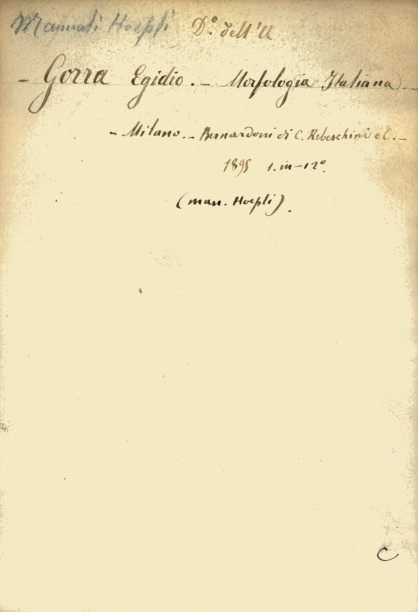 Manuali Hoepli D.º dell'A
- Gorra Egidio. - Morfologia Italiana -
- Milano. - Bernardoni di C. Rebeschini e C. -
1895 1. in-12º.
(man. Hoepli).
C